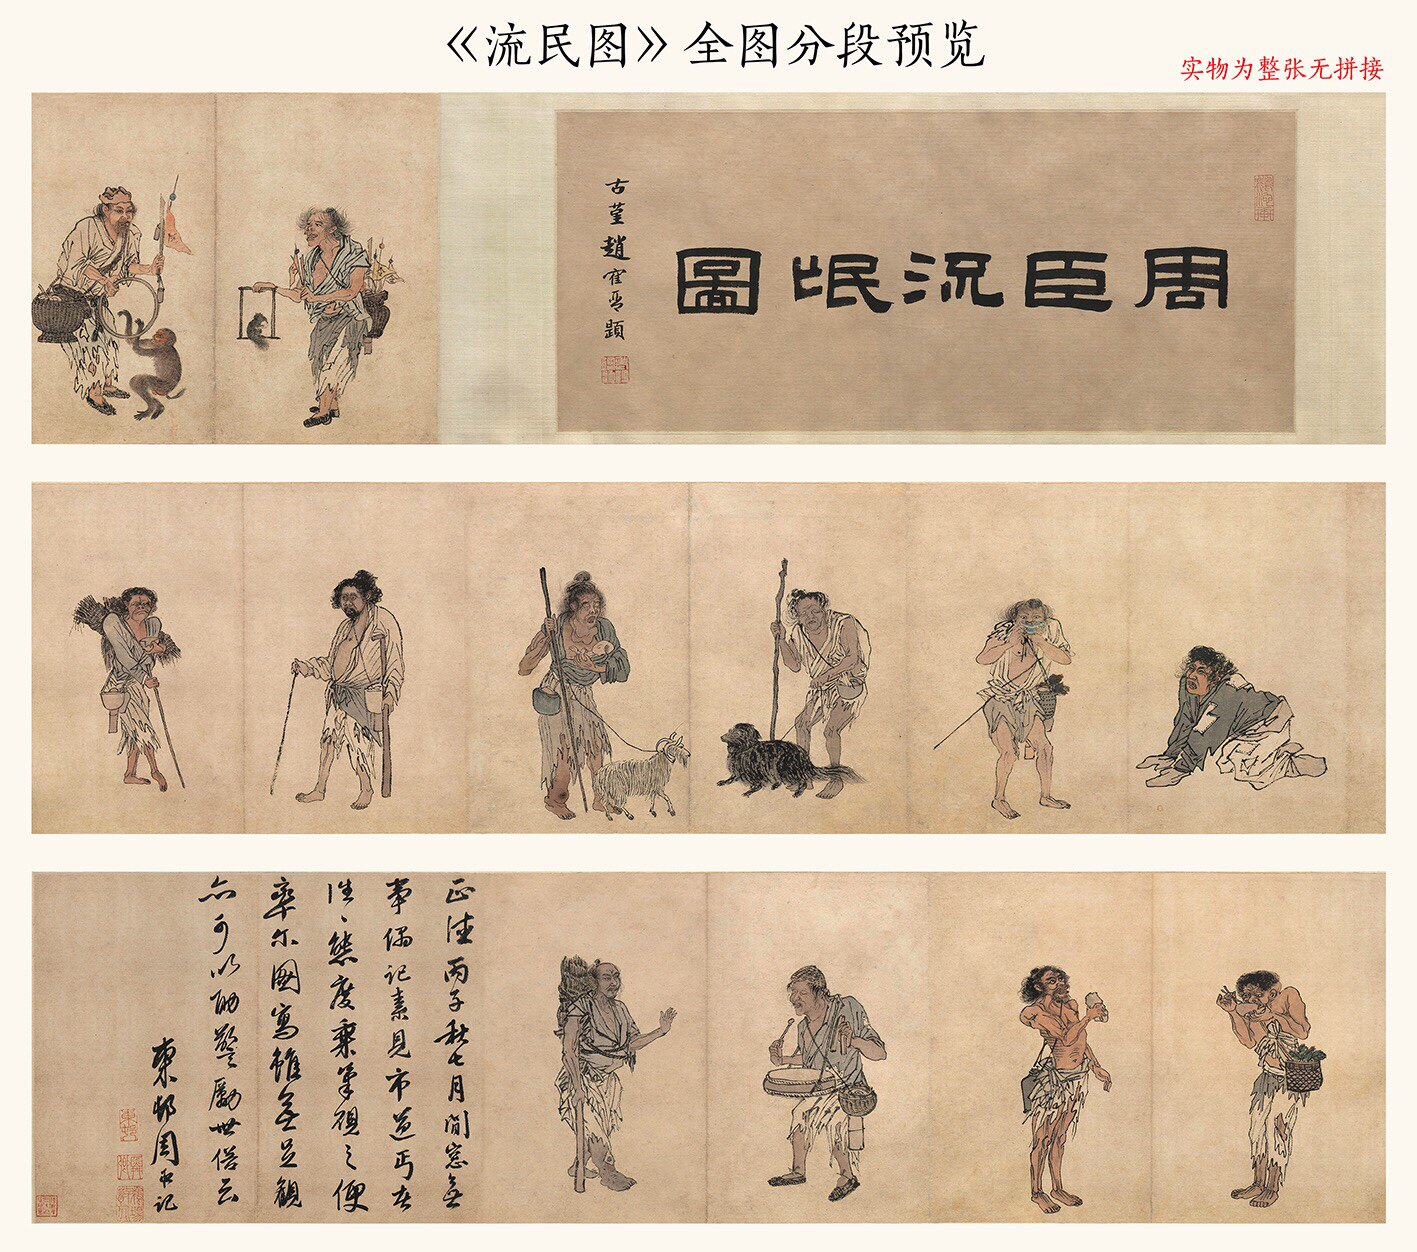 《流民图》全图分段预览
实物为整张无拼接
周臣流氓圖
古堇趙寉琴題
正德丙子秋七月閒窓無
事偶記素見市道丐者
往々態度乘筆硯之便
率尔圖寫雖無足觀
亦可以助警勵世俗云
東邨周臣記